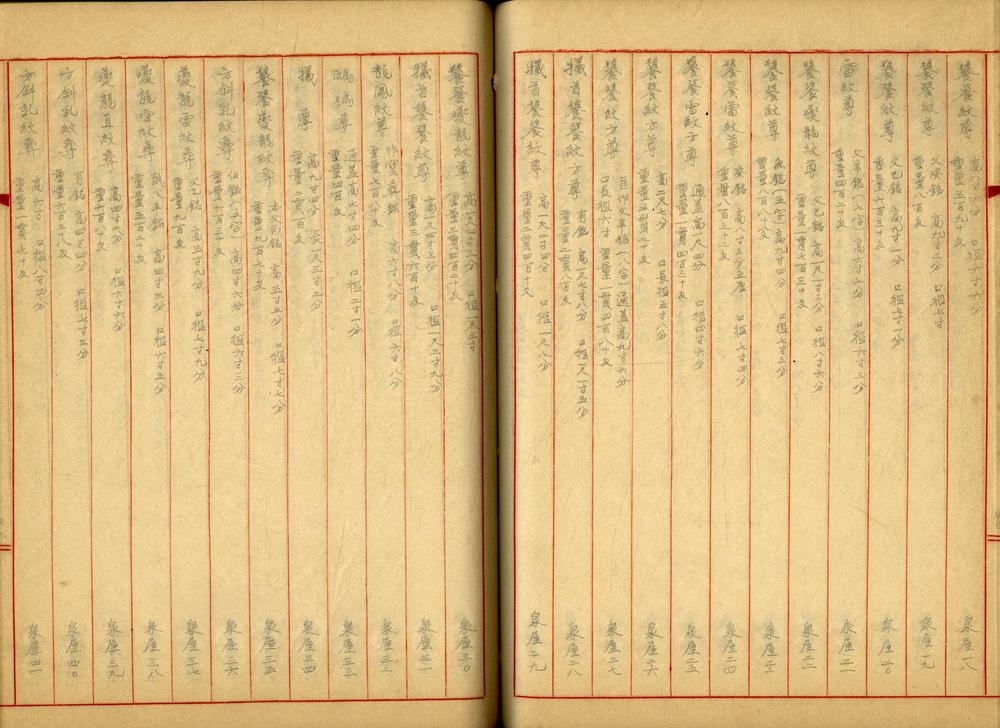 饕餮紋尊
高九寸六分 口徑
重量二百九十匁
泉屋一八
饕餮紋尊
父癸銘 高九寸二分 口徑七寸
重量一貫八百匁
泉屋一九
饕餮紋尊
父己銘 高九寸一分 口徑七寸一分
重量六百三十匁
泉屋二〇
雷紋尊
父辛銘(八字) 高六寸七分 口徑六寸三分
重量四百二十匁
泉屋二一
饕餮夔龍紋尊
父己銘 高一尺一寸三分 口徑八寸六分
重量一貫七百三十匁
泉屋二二
饕餮紋尊
銘(五字) 高九寸四分 口徑七寸三分
重量八百八十匁
泉屋二三
饕餮雷紋尊
癸銘 高八寸三分五厘 口徑七寸四分
重量八百三十二匁
泉屋二四
饕餮雷紋方尊
通蓋高一尺四分 口徑四寸六分
重量一貫四百三十匁
泉屋二五
饕餮紋方尊
高二尺七分 口長徑五寸八分
重量二貫二十匁
泉屋二六
饕餮紋方尊
作文辛銘(八字)通蓋高九寸六分
口長徑六寸 重量一貫四百八十匁
泉屋二七
犧首饕餮紋方尊
有銘 高一尺七寸八分 口徑一尺一寸五分
重量二貫八百匁
泉屋二八
犧首饕餮紋尊
高一尺一寸四分 口徑一尺八分
重量二貫四百十匁
泉屋二九
饕餮夔龍紋尊
高一尺二寸三分 口徑一尺三寸
重量三貫四百二十匁
泉屋三〇
犧首饕餮紋尊
高一尺四寸三分 口徑一尺二寸九分
重量三貫六百十匁
泉屋三一
龍鳳紋尊
作寶彝銘 高六寸八分 口徑六寸八分
重量七百八十匁
泉屋三二
鴟鴞尊
通蓋高七寸四分 口徑二寸一分
重量四百匁
泉屋三三
犧尊
高九寸四分 長一尺三寸二分
重量二貫二百匁
泉屋三四
饕餮夔龍紋尊
父銘 高五寸五分 口徑七寸七分
重量九百七十匁
泉屋三五
方斜乳紋尊
銘(五字) 高四寸六分 口徑六寸三分
重量六百三十匁
泉屋三六
夔龍雷紋尊
父乙銘 高五寸九分 口徑七寸九分
重量九百匁
泉屋三七
夔龍雷紋尊
父辛銘 高四寸三分 口徑六寸五分
重量五百二十匁
泉屋三八
夔龍直紋尊
高四寸六分 口徑六寸六分
重量七百十匁
泉屋三九
方斜乳紋尊
有銘 高四寸四分 口徑七寸三分
重量六百二十八匁
泉屋四〇
方斜乳紋尊
高六寸 口徑八寸四分
重量一貫七十匁
泉屋四一